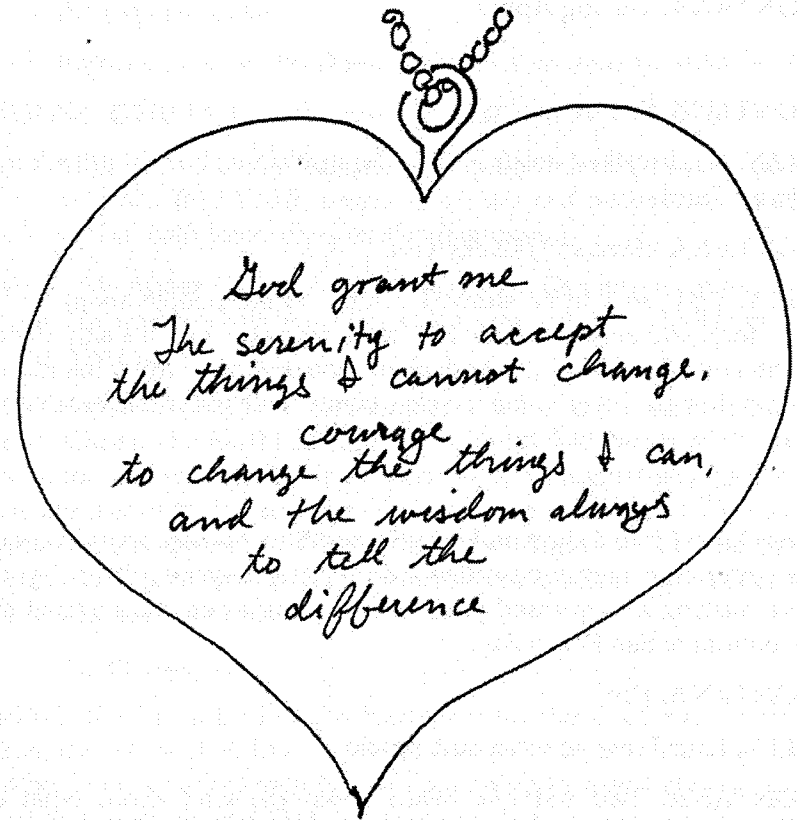 God grant me
The serenity to accept
the things I cannot change,
courage
to change the things I can,
and the wisdom always
to tell the
difference